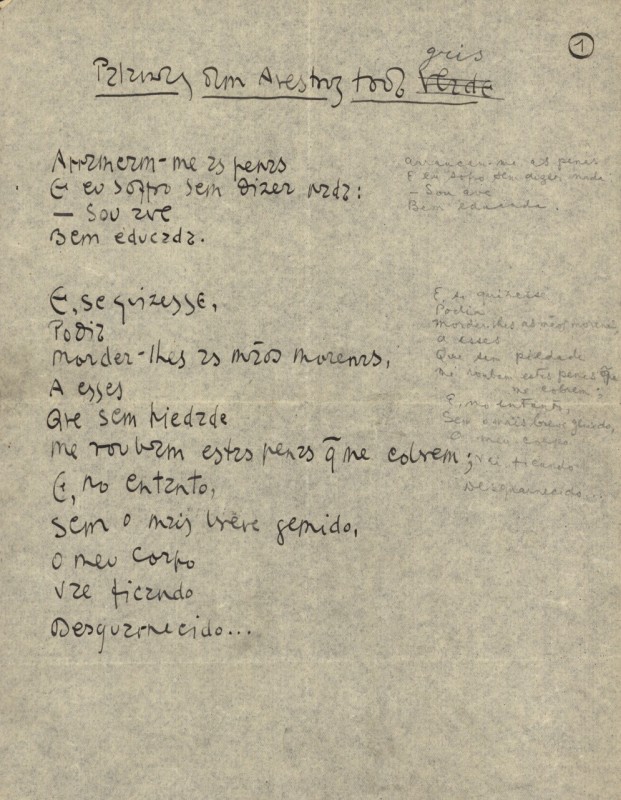 1
gris
Palavras dum Avestruz todo Verde
Arrancam-me as penas
E eu soffro sem dizer nada:
— Sou ave
Bem educada.
E, se quizesse,
Podia
Morder-lhes as mãos morenas,
A esses
Que sem piedade
Me roubam estas penas q̃ me cobrem;
E, no entanto,
Sem o mais breve gemido,
O meu corpo
Vae ficando
Desguarnecido...
Arrancam-me as penas
E eu sofro sem dizer nada
— Sou ave
Bem educada.
E, se quizesse
Podia
Morder-lhes as mãos morenas,
a esses
Que sem piedade
me roubam estas penas que
me cobrem:
E, no entanto,
Sem o mais breve gemido,
O meu corpo
Vai ficando
Desguarnecido...